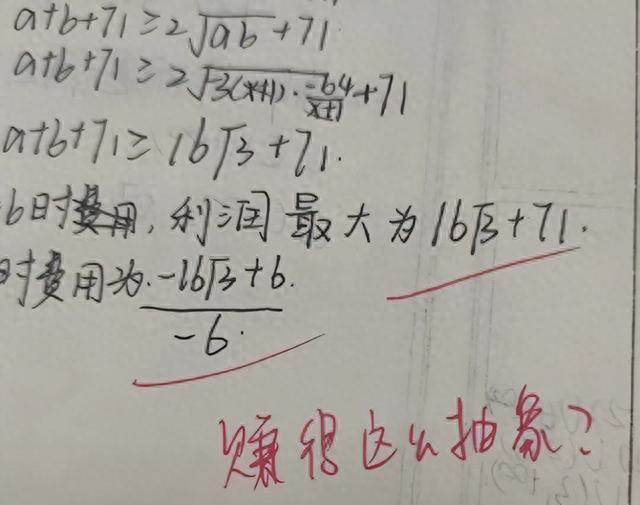 a+b+71≥2√ab+71
a+b+71≥2√-3(x+1)·-64/x+1+71
a+b+71≥16√3+71.
b时费用,利润最大为16√3+71.
时费用为.-16√3+6.
-6.
赚得这么抽象?